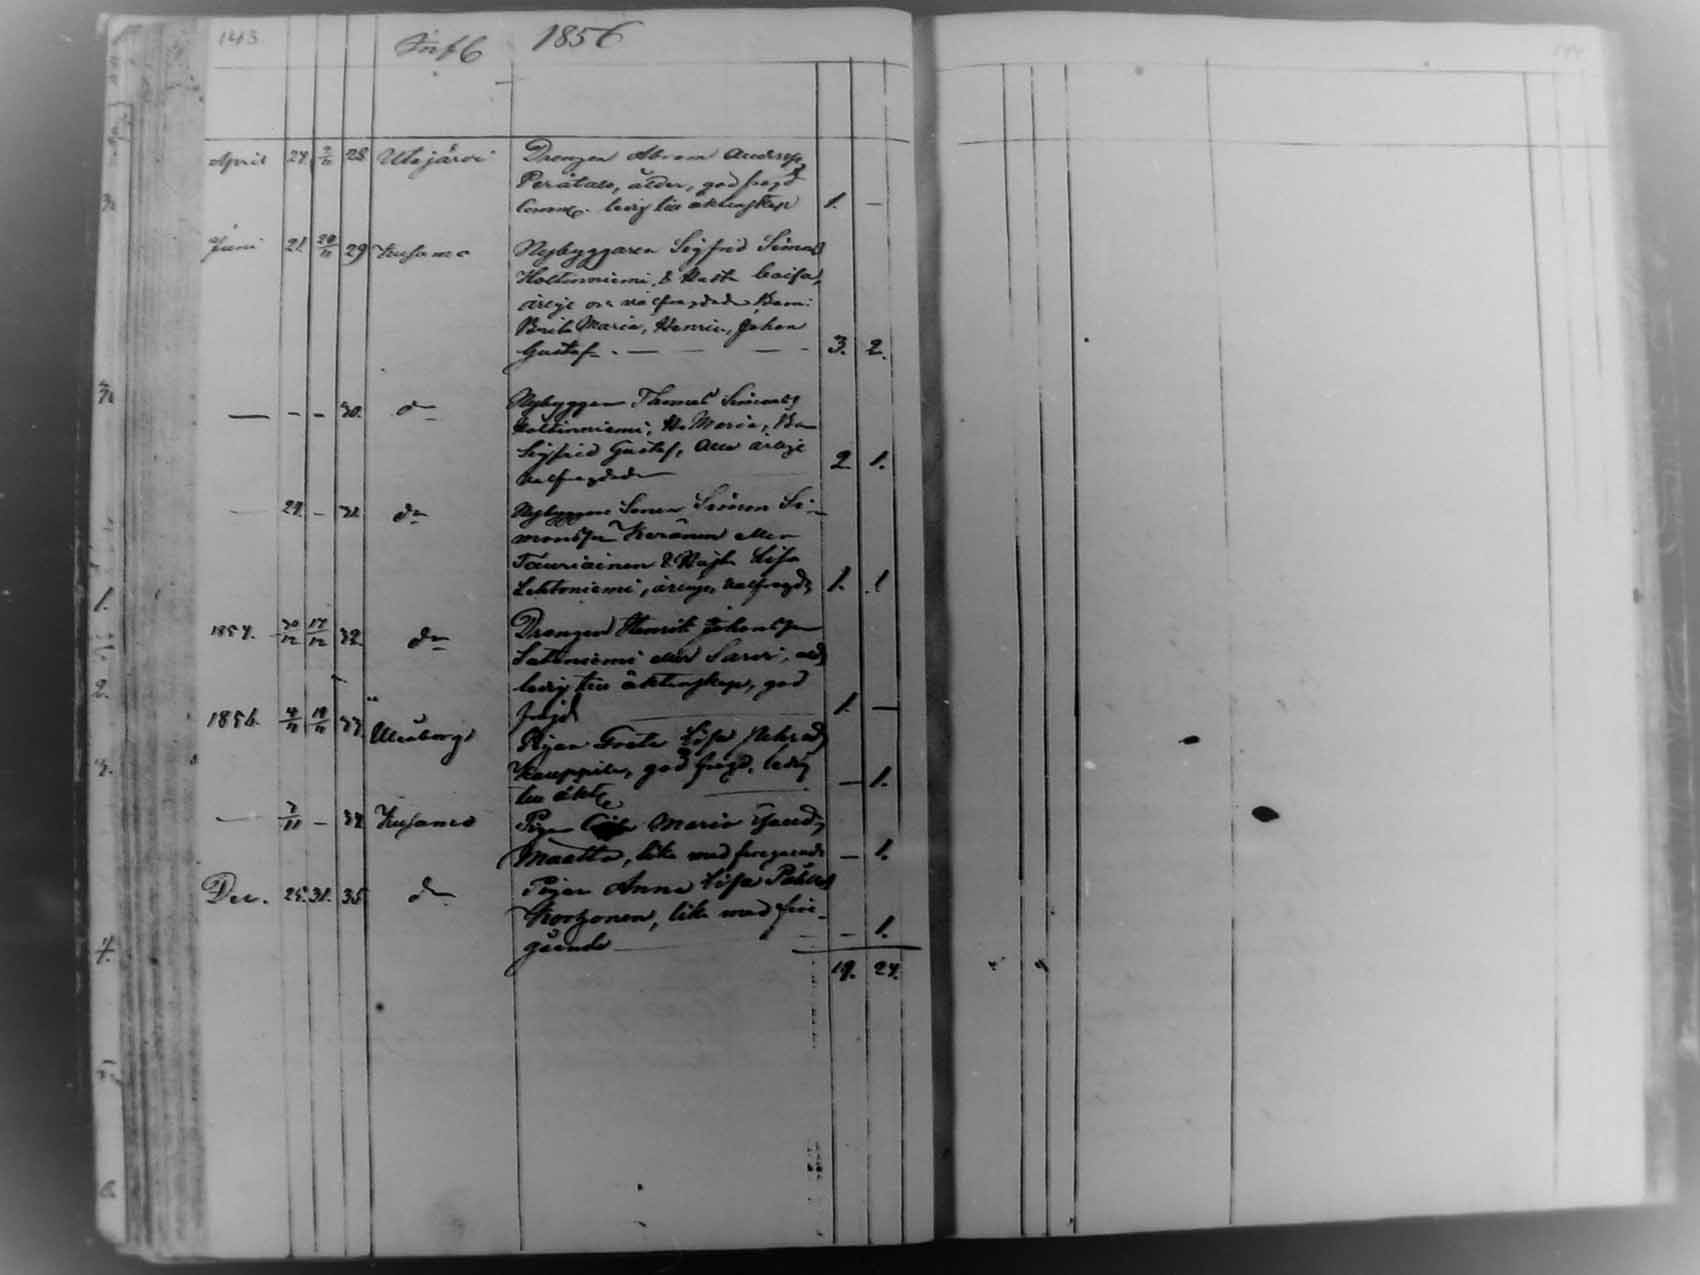 143
1856
April 27. 2/11 28. Utajärvi Drengen Abram Anderss.
Perätalo, ålder, god fregd
Comm. ledig till äktenskap 1. —
Juni 21. 20/11 29 Kusamo Nybyggaren Sigfrid Simons
Holtinniemi, & Hustr Caisa,
ärlige och välfregdade Barn:
Brita Maria, Henric, Johan
Gustaf. — — — 3. 2.
— - - 30. do Nybyggar Thomas Simons
Holtinniemi, H. Maria, Ba
Sigfrid Gustaf, alla ärlige
välfregdade 2 1.
— 29. - 31. do Nybyggare Sonen Simon Si-
monss. Keränen eller
Tauriainen & Hustr Lisa
Lehtoniemi, ärlige, välfregd. 1. 1
1857. 30/12 17/12 32. do Drengen Henrik Johanss.
eller Saari,
ledig till äktenskap, god
frejd 1. —
1856. 4/11 19/11 33. Uleåborg Pigan Greta Lisa
Kauppila, god fregd, ledig
till äkt. — 1.
— 7/11 - 34. Kusamo Pigan Maria
Maatta, lika med foregaende — 1.
Dec. 25. 31. 35. do Pigan Anna Lisa Påhls
Korhonen, lika med före-
gående — 1.
19. 24.